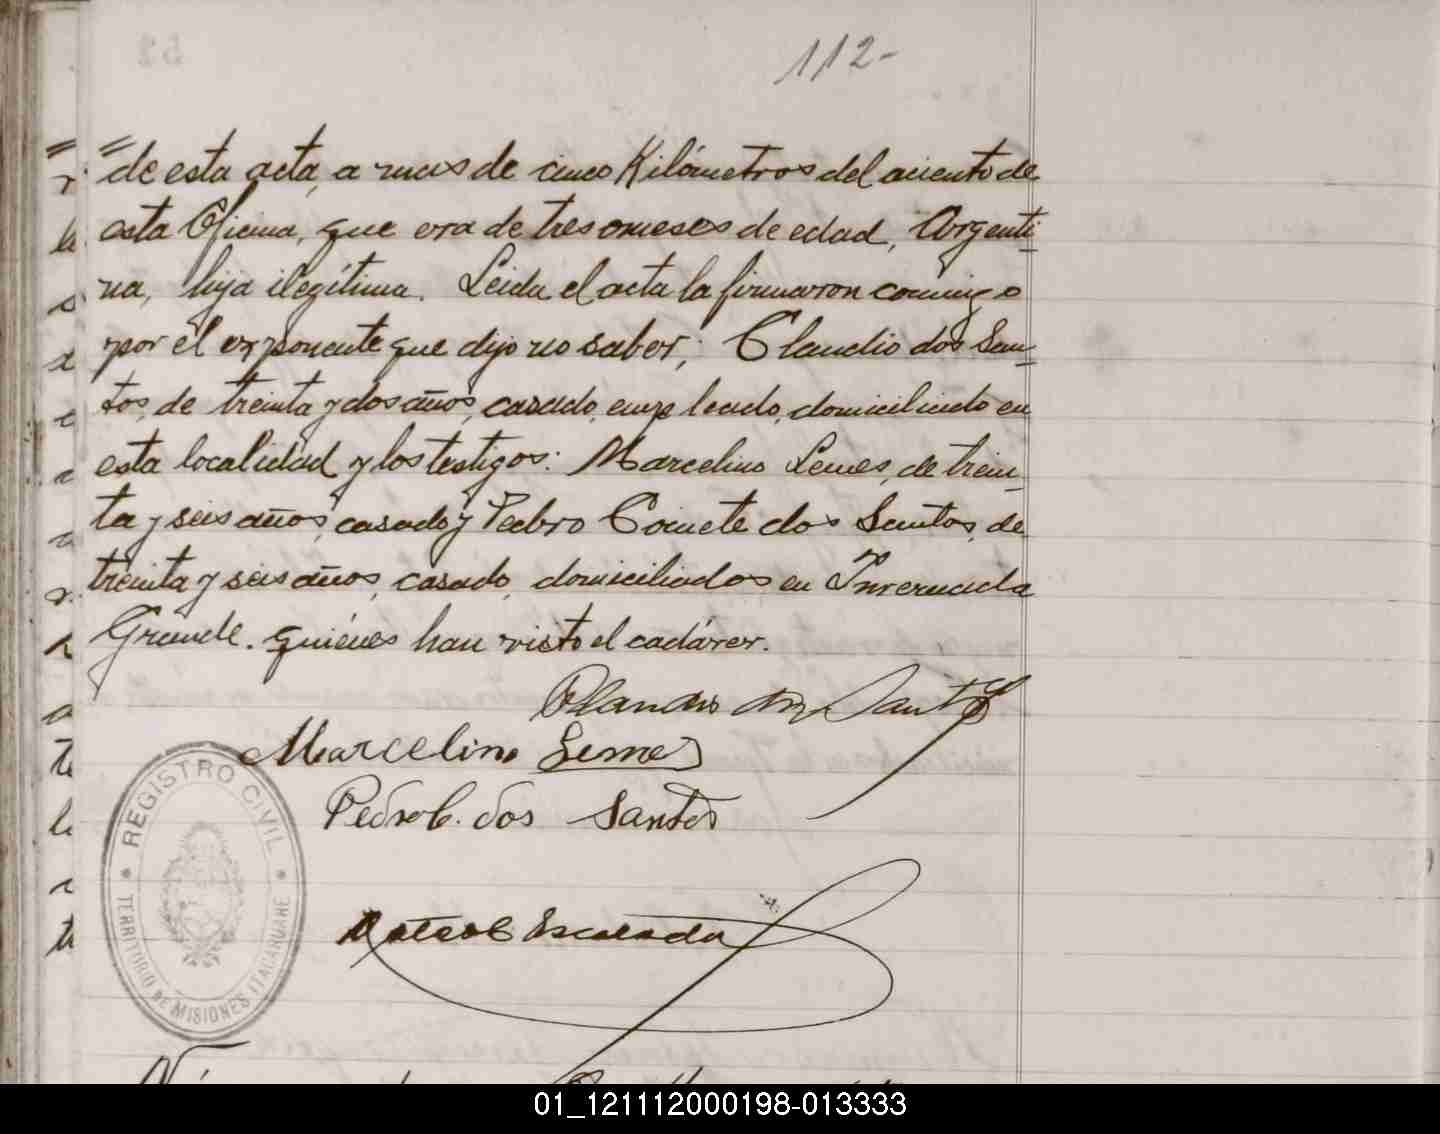 112-
"de esta acta, a mas de cinco Kilómetros del asiento de
esta Oficina, que era de tres meses de edad, Argenti-
na, hija ilegítima. Leida el acta la firmaron conmigo
por el exponente que dijo no saber; Claudio dos San-
tos, de treinta y dos años, casado, empleado, domiciliado en
esta localidad y los testigos: Marcelino Lemes, de trein-
ta y seis años, casado y Pedro Comete dos Santos, de
treinta y seis años, casado, domiciliados en Invernada
Grande. quiénes han visto el cadáver.
Claudio dos Santos
Marcelino Lemes
Pedro C. dos Santos
Escalada
REGISTRO CIVIL
TERRITORIO DE MISIONES ITACARUARE
01_121112000198-013333